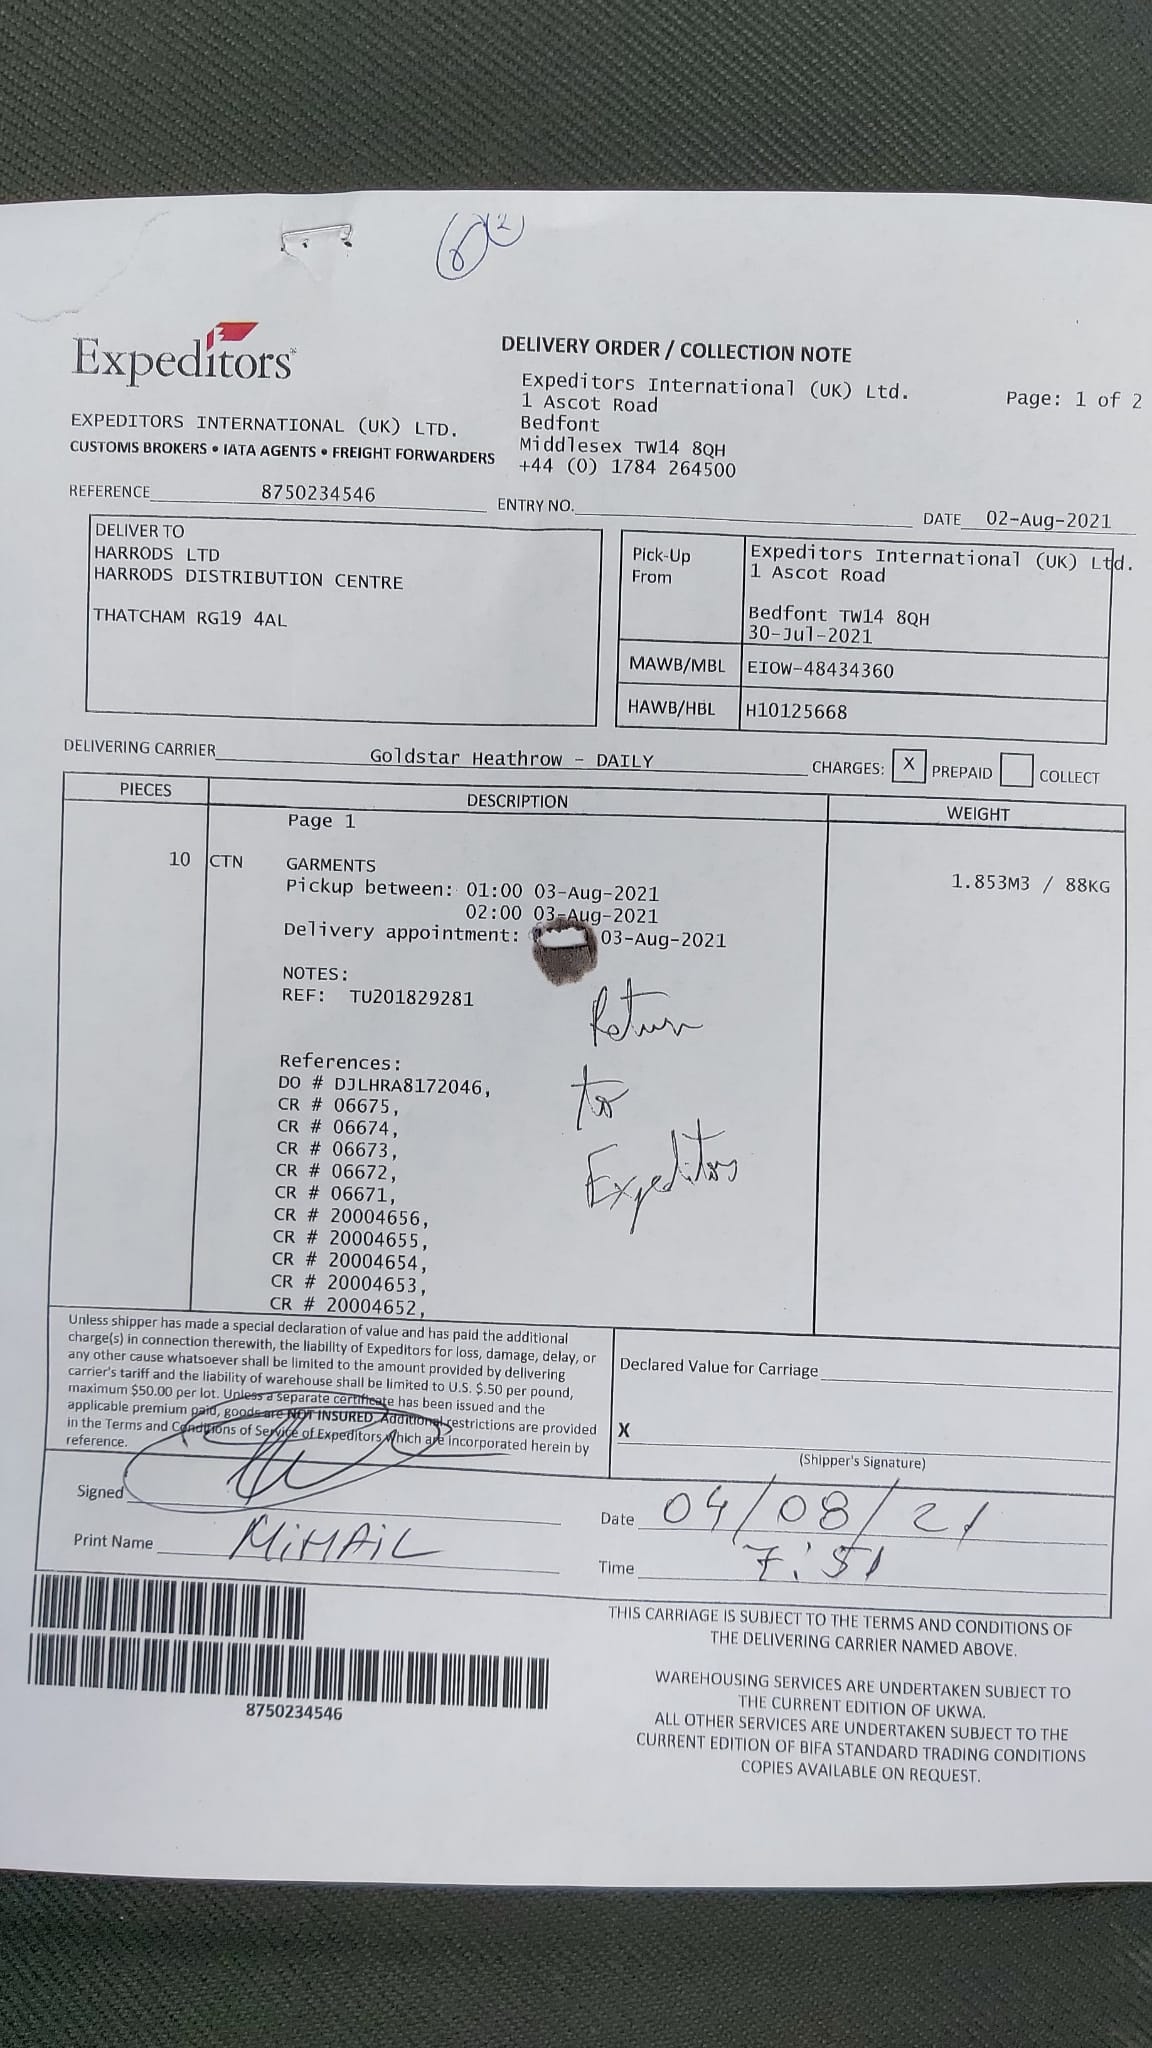 6 2
Expeditors
EXPEDITORS INTERNATIONAL (UK) LTD.
CUSTOMS BROKERS • IATA AGENTS • FREIGHT FORWARDERS
DELIVERY ORDER / COLLECTION NOTE
Expeditors International (UK) Ltd.
1 Ascot Road
Bedfont
Middlesex TW14 8QH
+44 (0) 1784 264500
Page: 1 of 2
REFERENCE 8750234546
ENTRY NO.
DATE 02-Aug-2021
DELIVER TO
HARRODS LTD
HARRODS DISTRIBUTION CENTRE
THATCHAM RG19 4AL
Pick-Up From
Expeditors International (UK) Ltd.
1 Ascot Road
Bedfont TW14 8QH
30-Jul-2021
MAWB/MBL EIOW-48434360
HAWB/HBL H10125668
DELIVERING CARRIER Goldstar Heathrow - DAILY
CHARGES: X PREPAID COLLECT
PIECES DESCRIPTION WEIGHT
Page 1
10 CTN GARMENTS 1.853M3 / 88KG
Pickup between: 01:00 03-Aug-2021
02:00 03-Aug-2021
Delivery appointment: 03-Aug-2021
NOTES:
REF: TU201829281
Return
to
Expeditors
References:
DO # DJLHRA8172046,
CR # 06675,
CR # 06674,
CR # 06673,
CR # 06672,
CR # 06671,
CR # 20004656,
CR # 20004655,
CR # 20004654,
CR # 20004653,
CR # 20004652,
Unless shipper has made a special declaration of value and has paid the additional
charge(s) in connection therewith, the liability of Expeditors for loss, damage, delay, or
any other cause whatsoever shall be limited to the amount provided by delivering
carrier's tariff and the liability of warehouse shall be limited to U.S. $.50 per pound,
maximum $50.00 per lot. Unless a separate certificate has been issued and the
applicable premium paid, goods are NOT INSURED. Additional restrictions are provided
in the Terms and Conditions of Service of Expeditors which are incorporated herein by
reference.
Declared Value for Carriage
X
(Shipper's Signature)
Signed
Print Name MiHAiL
Date 04/08/21
Time 7:51
8750234546
THIS CARRIAGE IS SUBJECT TO THE TERMS AND CONDITIONS OF
THE DELIVERING CARRIER NAMED ABOVE.
WAREHOUSING SERVICES ARE UNDERTAKEN SUBJECT TO
THE CURRENT EDITION OF UKWA.
ALL OTHER SERVICES ARE UNDERTAKEN SUBJECT TO THE
CURRENT EDITION OF BIFA STANDARD TRADING CONDITIONS
COPIES AVAILABLE ON REQUEST.